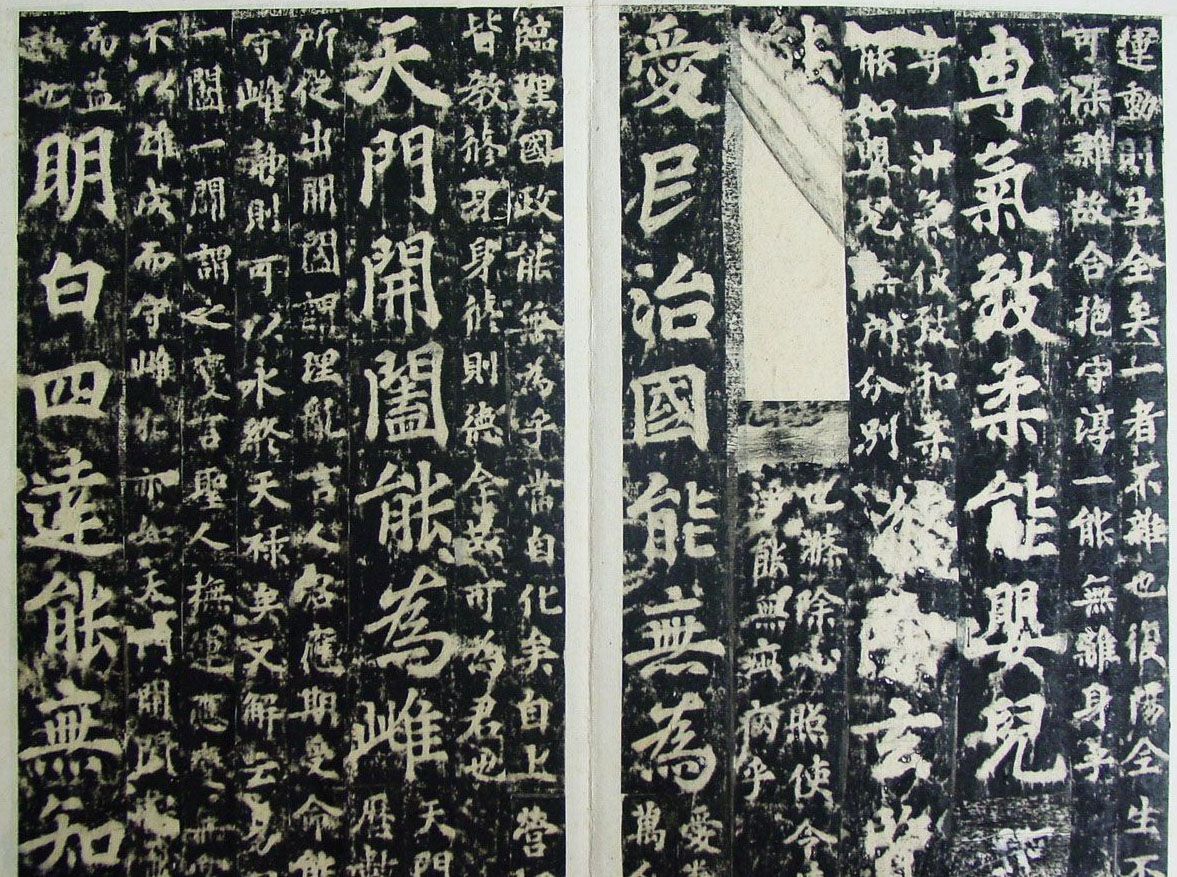 運動則生全矣一者不雜也復陽全生不
可雜故合抱守淳一能無離身乎
專氣致柔能嬰兒
守一沖氣使致和柔
能如嬰兒無所分別
滌除玄覽
也滌除心照使令
能無疵病乎
愛民治國能無為
愛
萬
臨理國政能無為乎當自化矣自上營
皆教修身身修則德全故可為君也
天門開闔能為雌
天門
歷數
所從出開闔謂理亂言人君應期受命能
守雌靜則可以永終天祿矣又解云易
一闔一闢謂之變言聖人撫運應變
不以雄成而守雌牝亦如天門開闔
而益
謙也
明白四達能無知